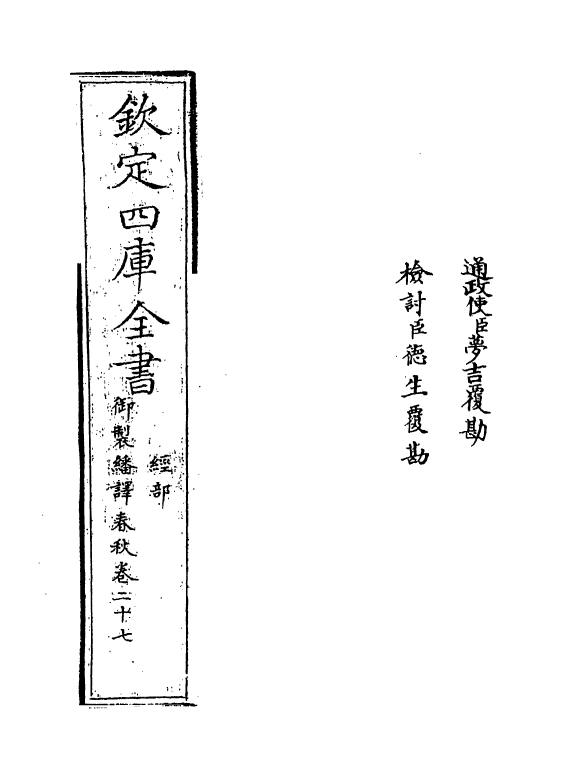 通政使臣夢吉覆勘
檢討臣德生覆勘
欽定四庫全書
經部
御製繙譯春秋卷二十七